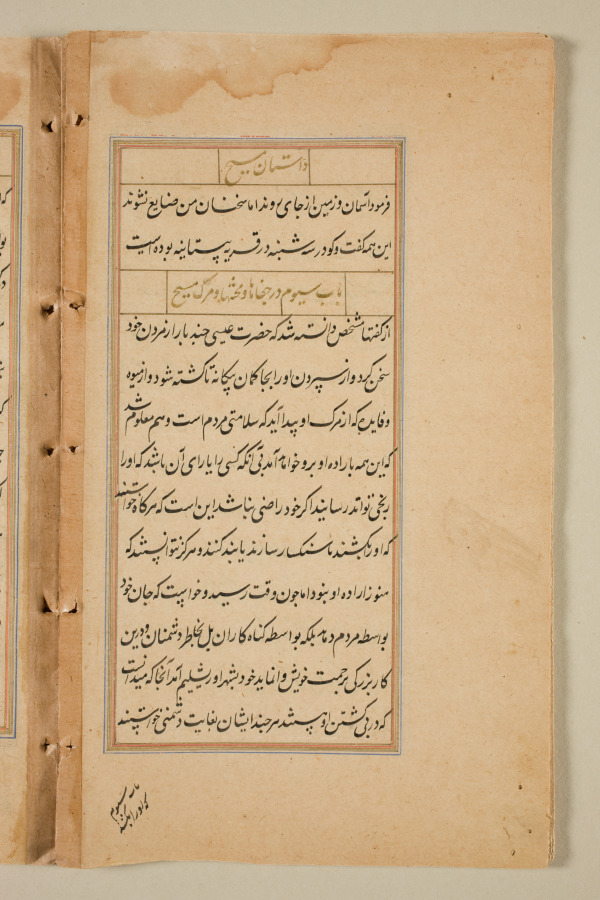 داستان مسیح
فرمود آسمان و زمین از جای بروند اما سخنان من ضایع نشوند
این همه کفت و کو در سه شنبه در قریه بیت‌انیه بوده است
باب سیوم در جفاها و محنتها و مرک مسیح
از کفتها مشخص دانسته شد که حضرت عیسی چند بار از مردن خود
سخن کرد و از سپردن او را بجاکمان بیکانه تا کشته شود و از میوه
و فایده که از مرک او پیدا آید که سلامتی مردم است و هم معلوم شد
که این همه باراده او برو خواهد آمد بی آنکه کسی را یارای آن باشد که او را
رنجی تواند رسانید اکر خود راضی نباشد این است که هرکاه خواستند
که او را بکشند یا سنکسار سازند یا بند کنند و هرکز نتوانستند که
هنوز اراده او نبود اما چون وقت رسید و خواست که جان خود
بواسطه مردم دهد بلکه بواسطه کناه کاران بل بخاطر دشمنان و درین
کار بزرکی مرحمت خویش وا نماید خود بشهر اورشلیم آمد آنجا که میدانست
که در پی کشتن او هستند هر چند ایشان بغایت دشمنی خواستند
باب سیوم
که او را بکشند